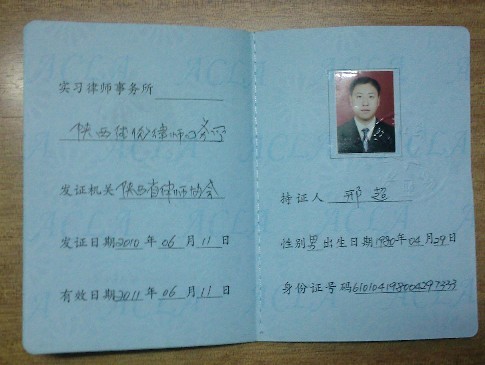 实习律师事务所
陕西律师事务所
发证机关 陕西省律师协会
发证日期2010年06月11日
有效日期2011年06月11日
持证人 邢超
性别男出生日期1980年04月29日
身份证号码610104198004297333
ACLA